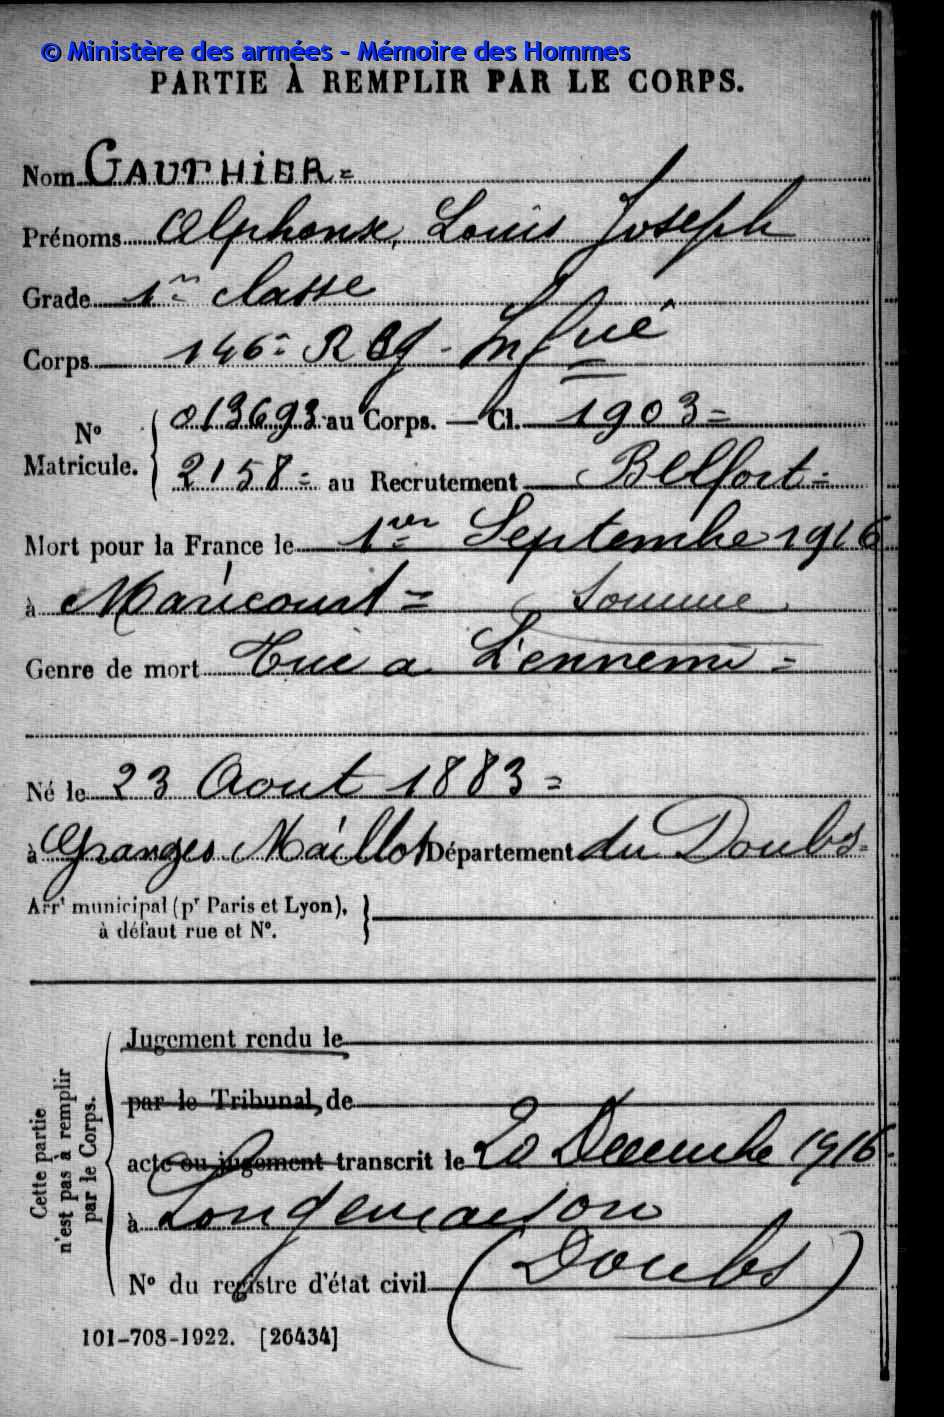 © Ministère des armées - Mémoire des Hommes
PARTIE À REMPLIR PAR LE CORPS.
Nom GAUTHIER =
Prénoms Alphonse, Louis Joseph
Grade 1re classe
Corps 146e Reg. Infrie
No Matricule. 013693 au Corps. — Cl. 1903 =
2158 = au Recrutement Belfort =
Mort pour la France le 1er Septembre 1916
à Maricourt = Somme
Genre de mort Tué a L'ennemi =
Né le 23 Aout 1883 =
à Granges Maillot Département du Doubs =
Arrt municipal (pr Paris et Lyon),
à défaut rue et No.
Cette partie
n'est pas à remplir
par le Corps.
Jugement rendu le
par le Tribunal de
acte ou jugement transcrit le 20 Decembre 1916
à Longemaison
(Doubs)
No du registre d'état civil
101-708-1922. [26434]